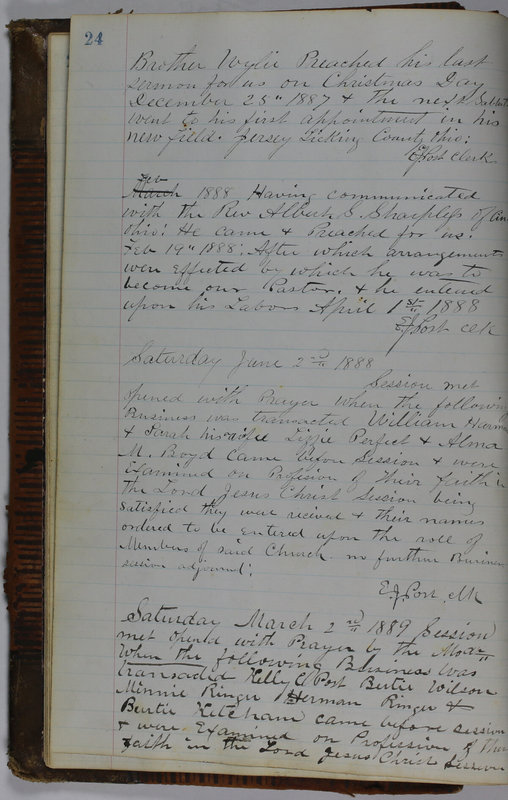 24
Brother Wylie Preached his last
sermon for us on Christmas Day
December 25" 1887 & the next Sabbath
went to his first appointment in his
new field. Jersey Licking County Ohio:
E J Post Clerk
Feb
March 1888 Having communicated
with the Rev Albert S. Sharpless of
Ohio: He came & Preached for us.
Feb 19" 1888. After which arrangements
were effected by which he was to
become our Pastor. & he entered
upon his Labors April 1st 1888
E J Post Clk
Saturday June 2nd 1888
Session met
opened with Prayer when the following
Business was transacted William
& Sarah his wife Lizzie Perfect & Alma
M. Boyd Came before Session & were
Examined on Profision of their faith in
the Lord Jesus Christ Session being
satisfied they were recived & their names
ordered to be entered upon the roll of
Members of said Church. no further Business
session adjourned:
E. J. Post Clk
Saturday March 2nd 1889 Session
met opened with Prayer by the Mod
When the following Business was
transacted Kelly C Post Bertie Wilson
Minnie Ringer Herman Ringer &
Bertie Ketcham came before session
& were Examined on Profession of their
faith in the Lord Jesus Christ Session